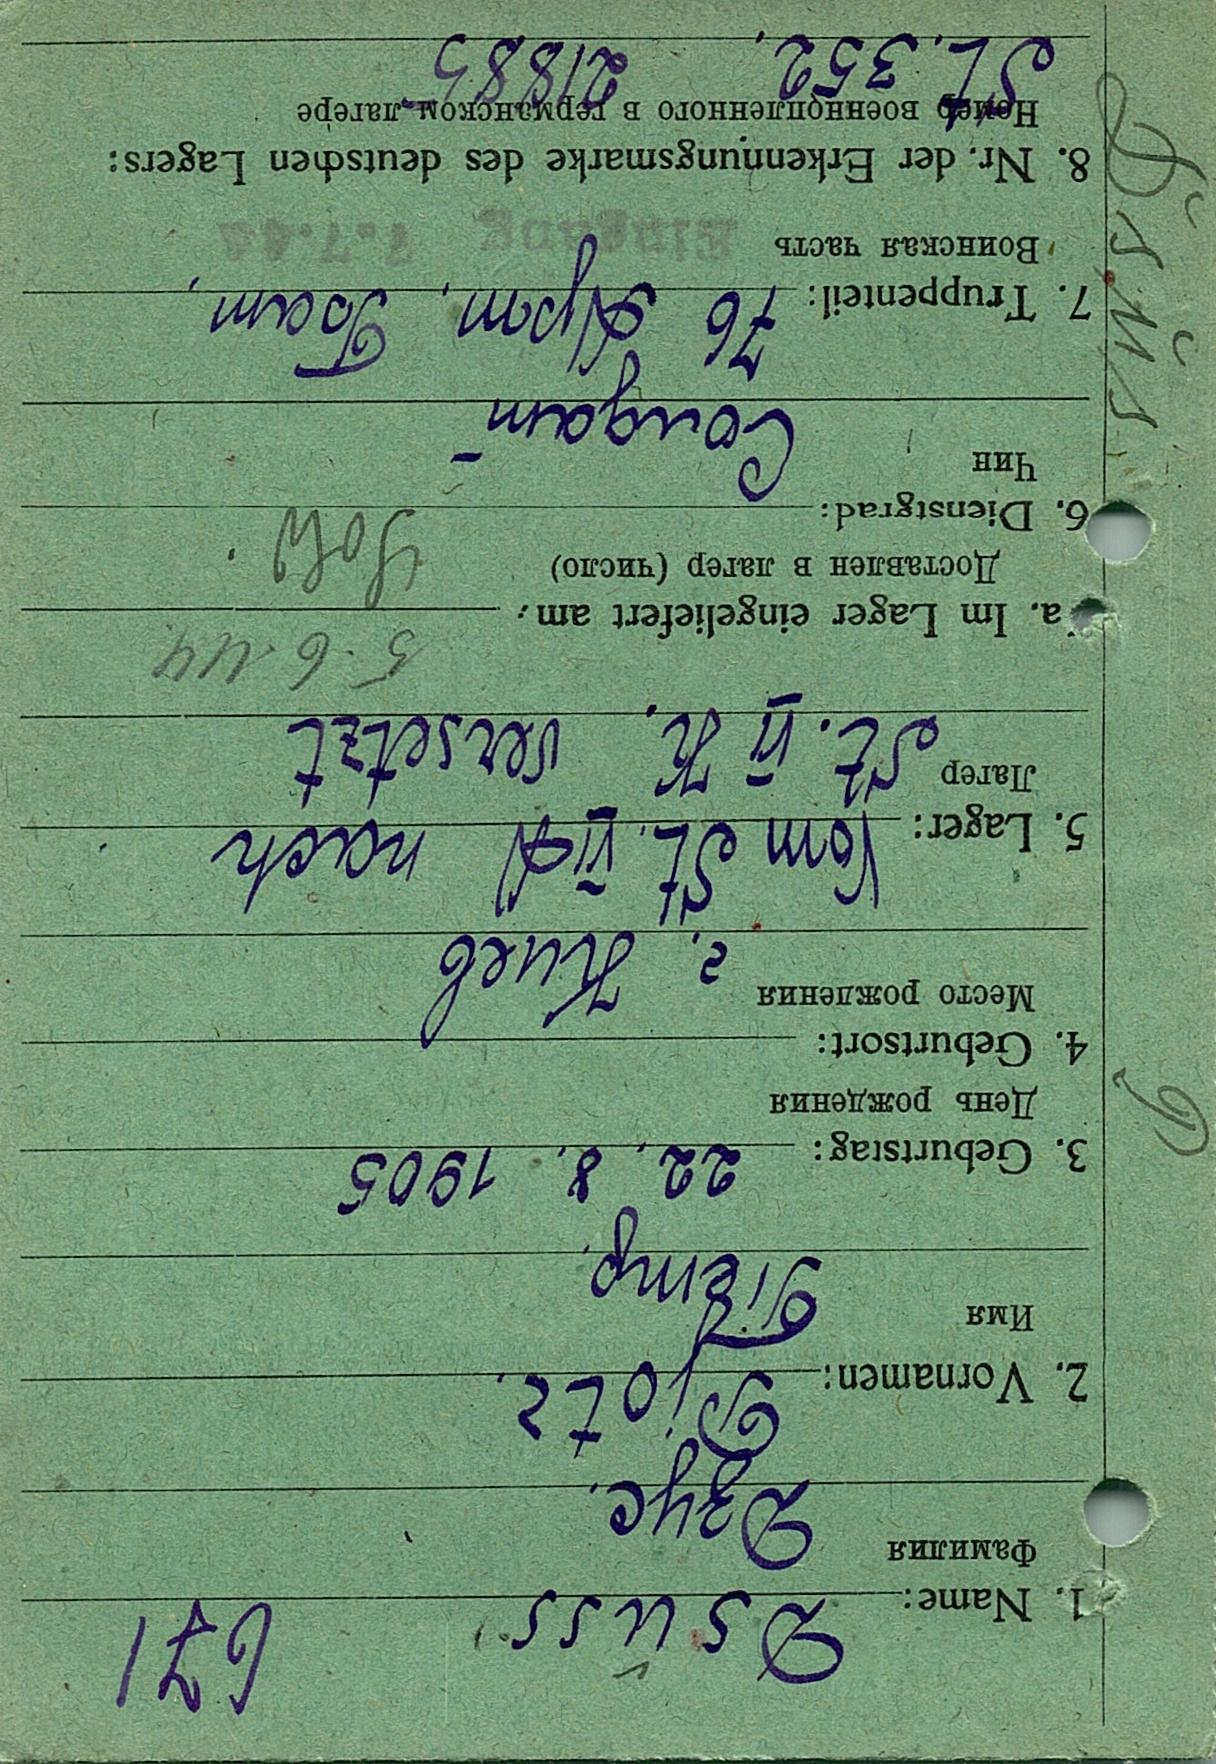 671
1. Name: Dsuss
Фамилия Дзус.
2. Vornamen: Piotr.
Имя Пётр.
3. Geburtstag: 22. 8. 1905
День рождения
4. Geburtsort:
Место рождения г. Киев
5. Lager: Vom St. VI A nach
Лагер St. VI K. versetzt
5.6.44
a. Im Lager eingeliefert am:
Доставлен в лагер (число)
6. Dienstgrad:
Чин Солдат
7. Truppenteil: 76 Арт. Баат,
Воинская часть
Eingang 1.7.44
8. Nr. der Erkennungsmarke des deutschen Lagers:
Номер военнопленного в германском лагере
St. 352, 21885